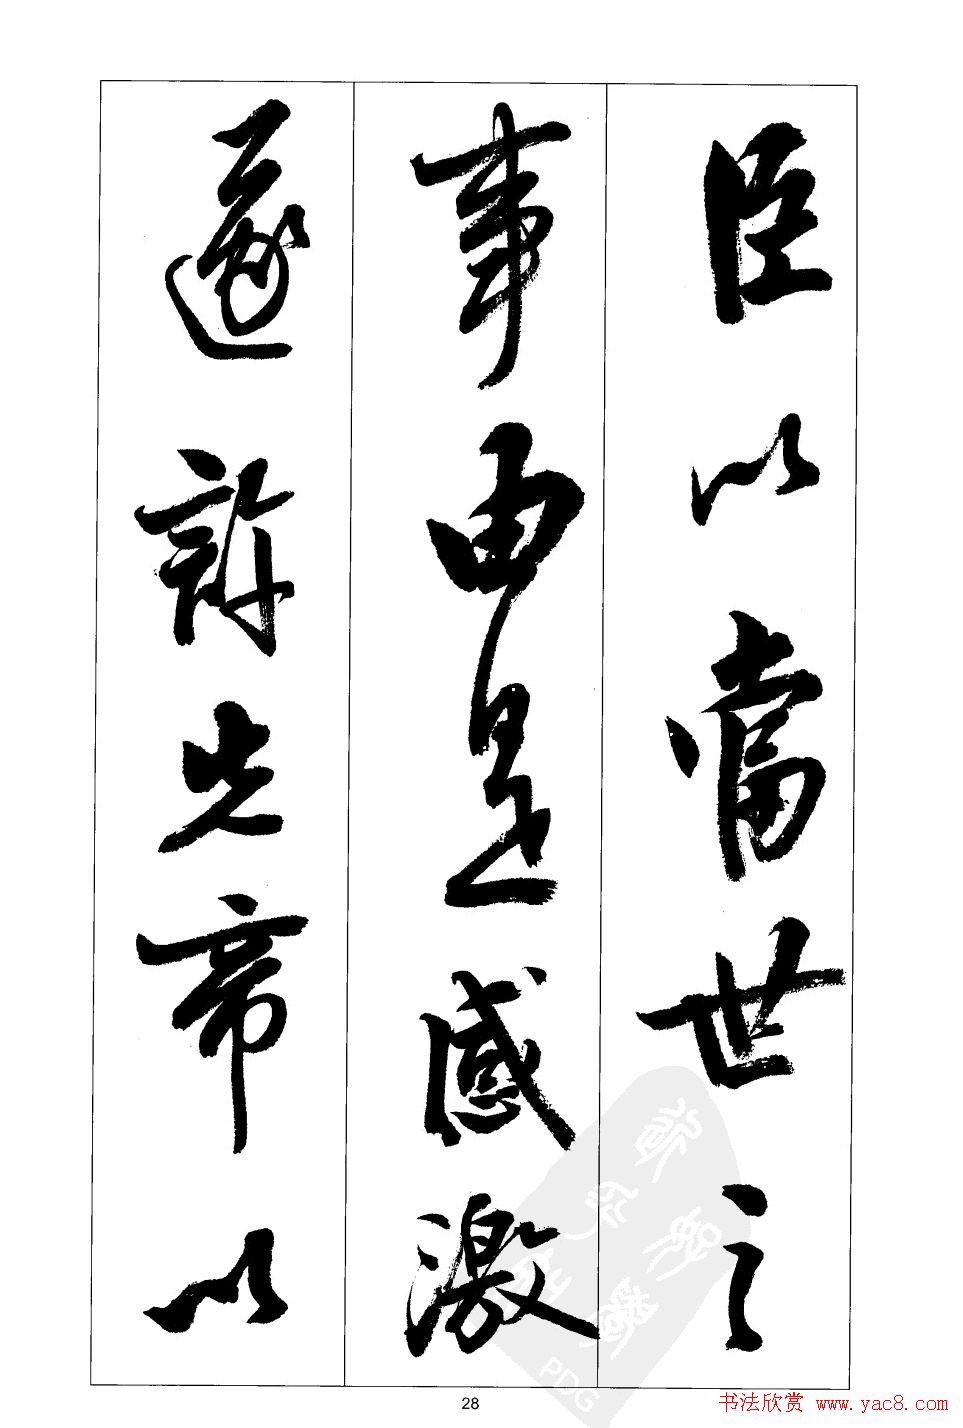 臣以當世之
事由是感激
遂許先帝以
28
书法欣赏 www.yac8.com
PDG